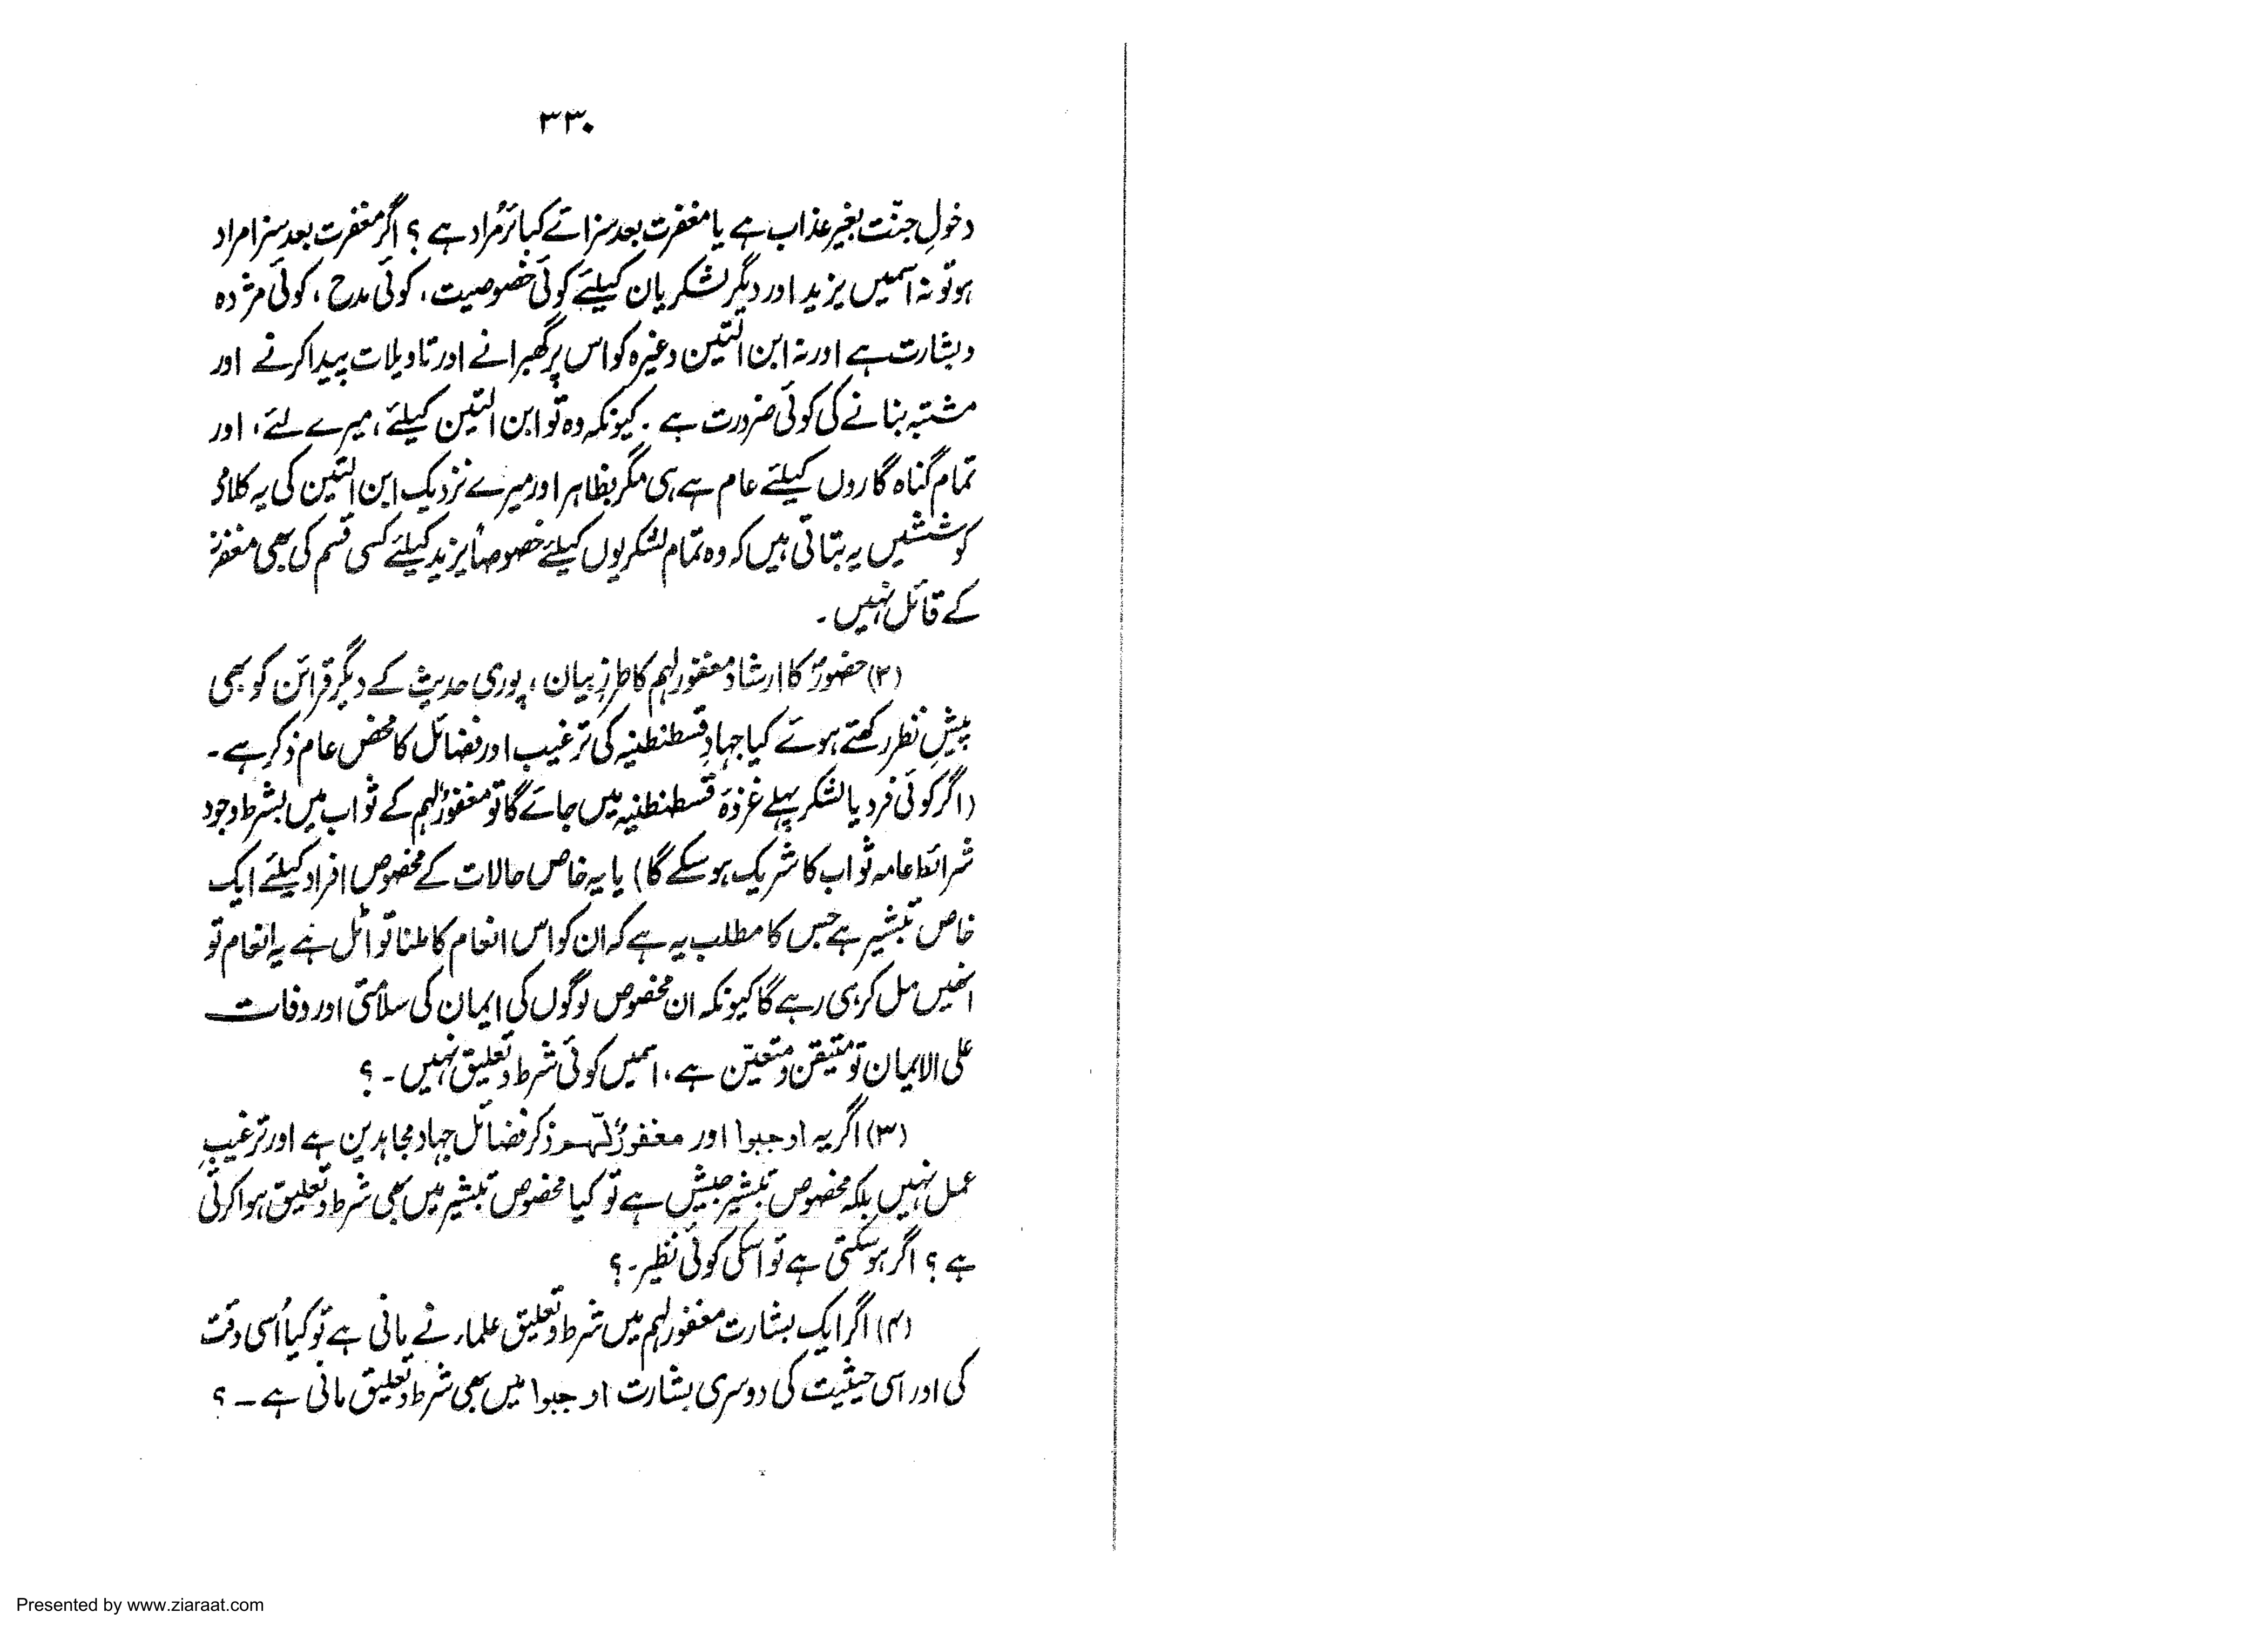 ۳۳۰
دخولِ جنّت بغیر عذاب ہے یا مغفرت بعد سزائے کبائر مُراد ہے ؟ اگر مغفرت بعد سزا مراد
ہو تو نہ اسمیں یزید اور دیگر لشکریان کیلئے کوئی خصوصیت ، کوئی مدح ، کوئی مژدہ
و بشارت ہے اور نہ ابن التین وغیرہ کو اس پر گھبرانے اور تاویلات پیدا کرنے اور
مشتبہ بنانے کی کوئی ضرورت ہے ۔ کیونکہ وہ تو ابن التین کیلئے ، میرے لئے ، اور
تمام گناہ گاروں کیلئے عام ہے ہی مگر بظاہر اور میرے نزدیک ابن التین کی یہ کلامی
کوششیں یہ بتاتی ہیں کہ وہ تمام لشکریوں کیلئے خصوصاً یزید کیلئے کسی قسم کی بھی مغفرت
کے قائل نہیں ۔
(۲) حضورؐ کا ارشاد مغفور لہم کا طرزِ بیان ، پوری حدیث کے دیگر قرائن کو بھی
پیشِ نظر رکھتے ہوئے کیا جہادِ قسطنطنیہ کی ترغیب اور فضائل کا محض عام ذکر ہے ۔
(اگر کوئی فرد یا لشکر پہلے غزوۂ قسطنطنیہ میں جائے گا تو مغفورٌ لہم کے ثواب میں بشرط وجود
شرائط عامہ ثواب کا شریک ہو سکے گا) یا یہ خاص حالات کے مخصوص افراد کیلئے ایک
خاص تبشیر ہے جس کا مطلب یہ ہے کہ ان کو اس انعام کا ملنا تو اٹل ہے یہ انعام تو
انھیں مل کر ہی رہے گا کیونکہ ان مخصوص لوگوں کی ایمان کی سلامتی اور وفات
علی الایمان تو متیقن و متعیّن ہے ، اسمیں کوئی شرط و تعلیق نہیں ۔ ؟
(۳) اگر یہ اوجبوا اور مغفورٌ لّہم ذکر فضائل جہاد مجاہدین ہے اور ترغیبِ
عمل نہیں بلکہ مخصوص تبشیر جیش ہے تو کیا مخصوص تبشیر میں بھی شرط و تعلیق ہوا کرتی
ہے ؟ اگر ہو سکتی ہے تو اسکی کوئی نظیر ۔ ؟
(۴) اگر ایک بشارت مغفور لہم میں شرط و تعلیق علماء نے مانی ہے تو کیا اُسی وقت
کی اور اسی حیثیت کی دوسری بشارت اوجبوا میں بھی شرط و تعلیق مانی ہے ۔ ؟
Presented by www.ziaraat.com